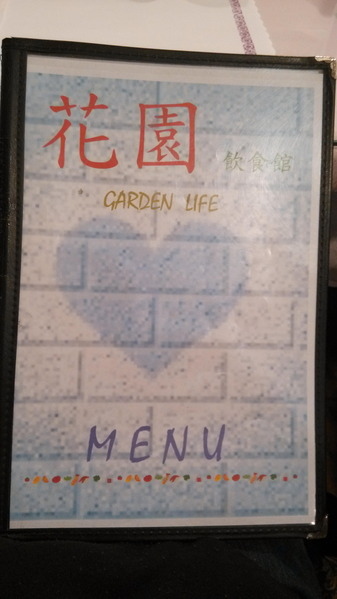 花園 飲食館
GARDEN LIFE
MENU